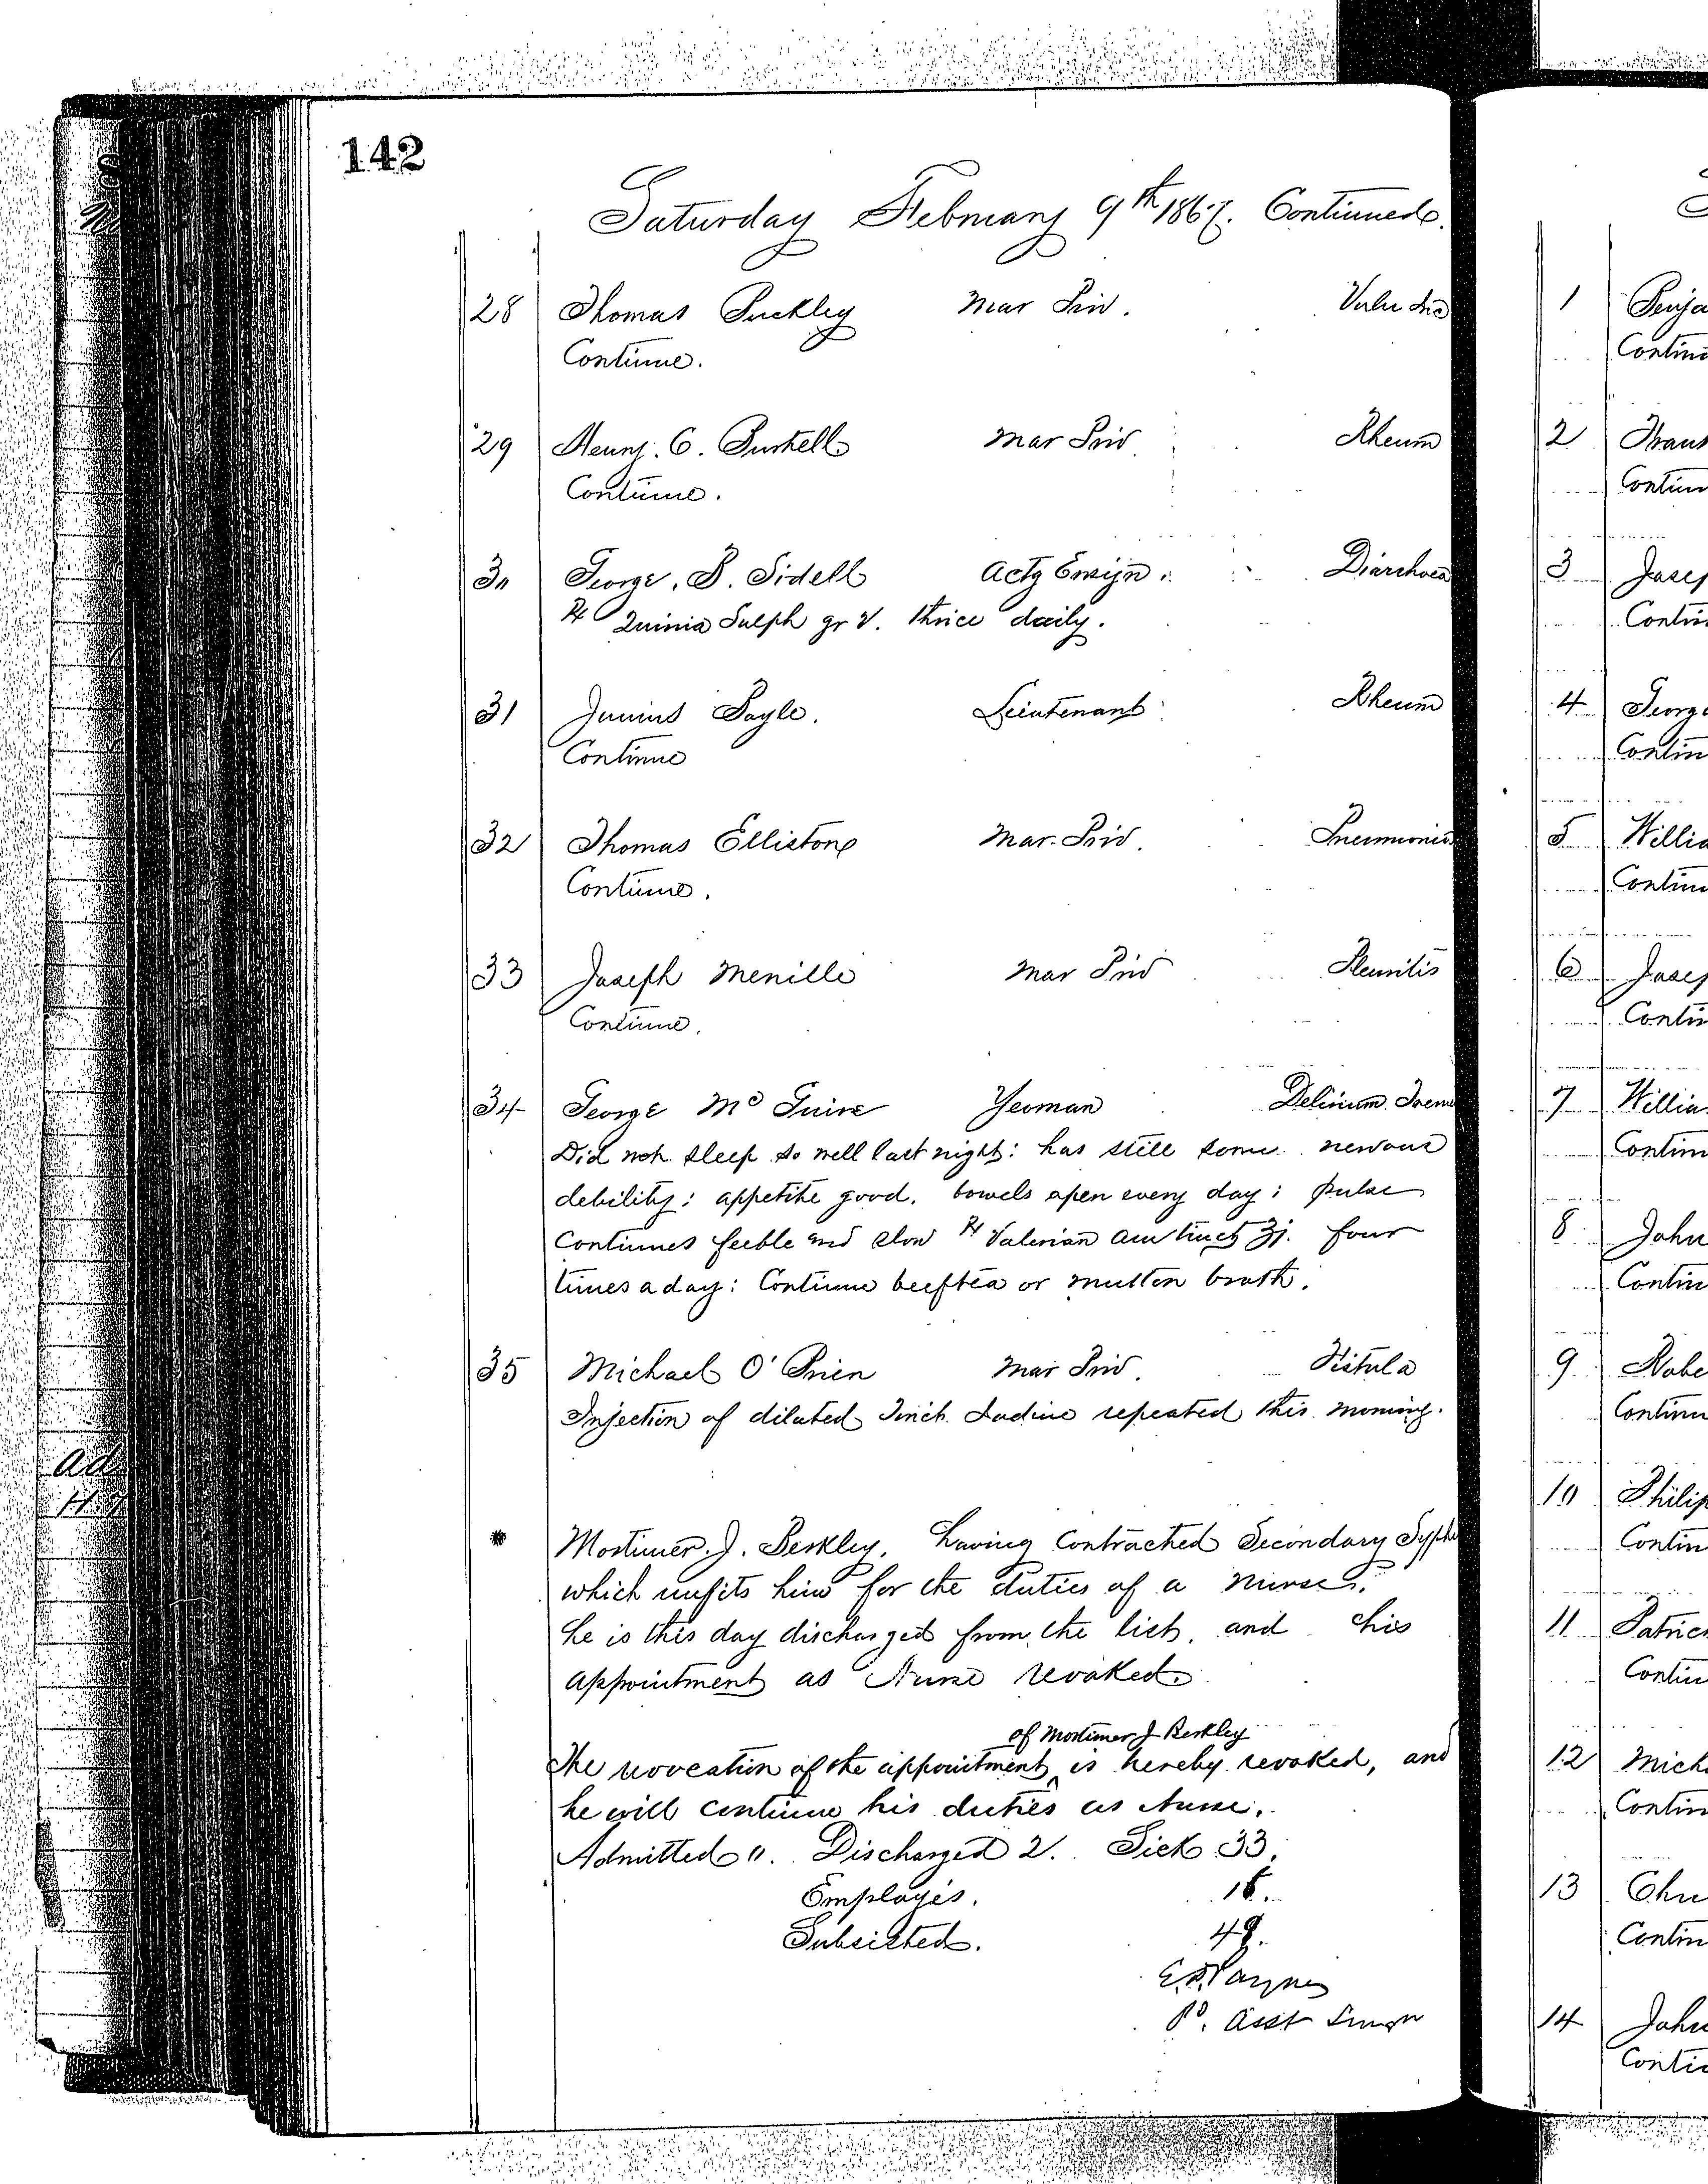 142
Saturday February 9th 1867. Continued.
28 Thomas Buckley Mar Priv.
Continue.
29 Henry. C. Mar Priv Rheum
Continue.
30 George. B. Sidell Actg Ensign. Diarrhoea
℞ Quinia Sulph gr V. thrice daily.
31 Junius Boyle. Lieutenant Rheum
Continue
32 Thomas Ellistone Mar. Priv. Pneumonia
Continue.
33 Joseph Menille Mar Priv Pleuritis
Continue.
34 George McGuire Yeoman Delirium Treme
Did not sleep so well last night: has still some nervous
debility: appetite good. bowels open every day: pulse
Continues feeble and slow ℞ Valerian Am tinct ʒj. four
times a day: Continue beef tea or mutton broth.
35 Michael O'Brien Mar Priv. Fistula
Injection of diluted Tinct. Iodine repeated this morning.
* Mortimer. J. Berkley. having Contracted Secondary Syphi
which unfits him for the duties of a nurse.
he is this day discharged from the list. and his
appointment as Nurse revoked.
of Mortimer J Berkley
The revocation of the appointment ^ is hereby revoked, and
he will continue his duties as Nurse.
Admitted 0. Discharged 2. Sick 33.
Employés. 16.
Subsisted. 49.
Pd. Asst Surgn
1
Contin
2
Contin
3 Josep
Contin
4 George
Contin
5 Willia
Contin
6 Josep
Contin
7 Willia
Contin
8 John
Contin
9 Robe
Contin
10 Philip
Contin
11 Patric
Contin
12 Mich
Contin
13
Contin
14 John
Contin